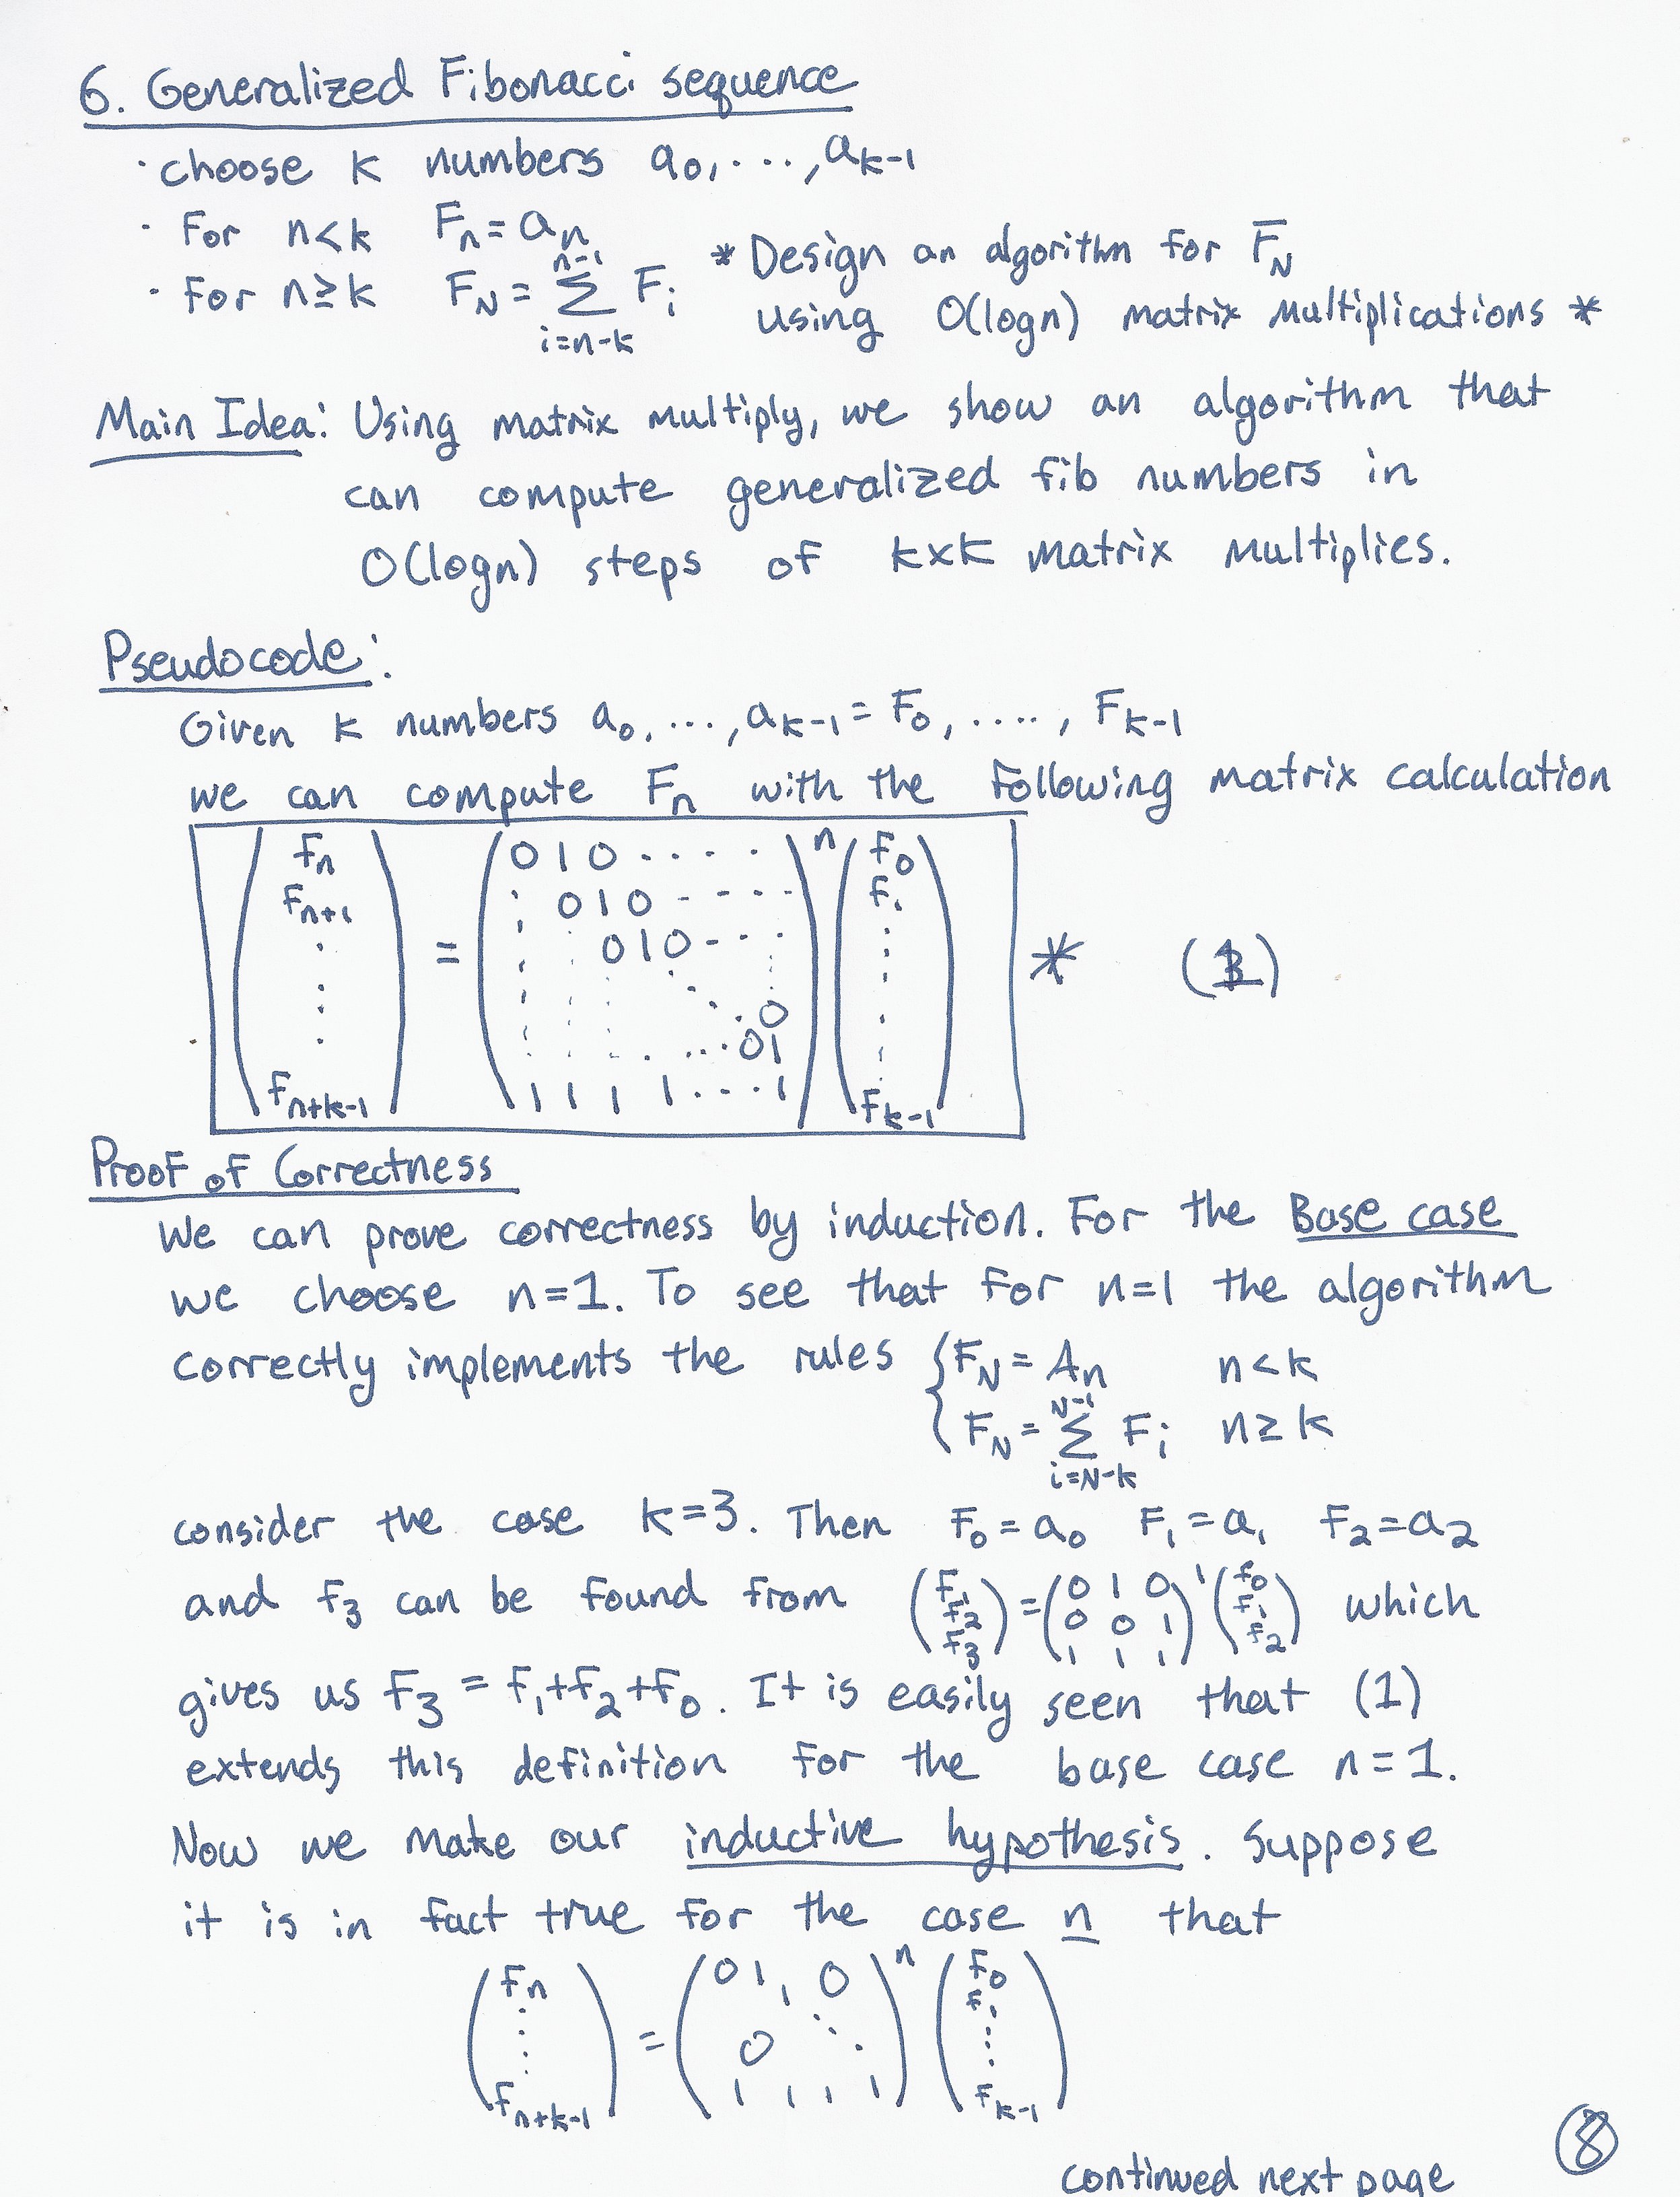 6. Generalized Fibonacci sequence
· choose k numbers a₀, ..., aₖ₋₁
· For n<k Fₙ = aₙ
· For n≥k F_N = Σ_{i=n-k}^{n-1} F_i
* Design an algorithm for F̅_N
using O(logn) matrix multiplications *
Main Idea: Using matrix multiply, we show an algorithm that
can compute generalized fib numbers in
O(logn) steps of k×k matrix multiplies.
Pseudocode:
Given k numbers a₀, ..., aₖ₋₁ = F₀, ...., Fₖ₋₁
we can compute Fₙ with the following matrix calculation
(fₙ fₙ₊₁ ⋮ fₙ₊ₖ₋₁) = (0 1 0 ..... / 0 1 0 ---- / 0 1 0 --- / ... 0 / ... 0 1 / 1 1 1 1 .... 1)ⁿ (f₀ f₁ ⋮ fₖ₋₁) * (1)
Proof of Correctness
We can prove correctness by induction. For the Base case
we choose n=1. To see that for n=1 the algorithm
correctly implements the rules { F_N = Aₙ n<k
F_N = Σ_{i=N-k}^{N-1} F_i n≥k
consider the case k=3. Then F₀=a₀ F₁=a₁ F₂=a₂
and f₃ can be found from (f₁ f₂ f₃) = (0 1 0 / 0 0 1 / 1 1 1)¹ (f₀ f₁ f₂) which
gives us f₃ = f₁+f₂+f₀. It is easily seen that (1)
extends this definition for the base case n=1.
Now we make our inductive hypothesis. Suppose
it is in fact true for the case n that
(fₙ ⋮ fₙ₊ₖ₋₁) = (0 1 1 0 / 0 ⋱ / 1 1 1 1)ⁿ (f₀ f₁ ⋮ fₖ₋₁)
continued next page
8